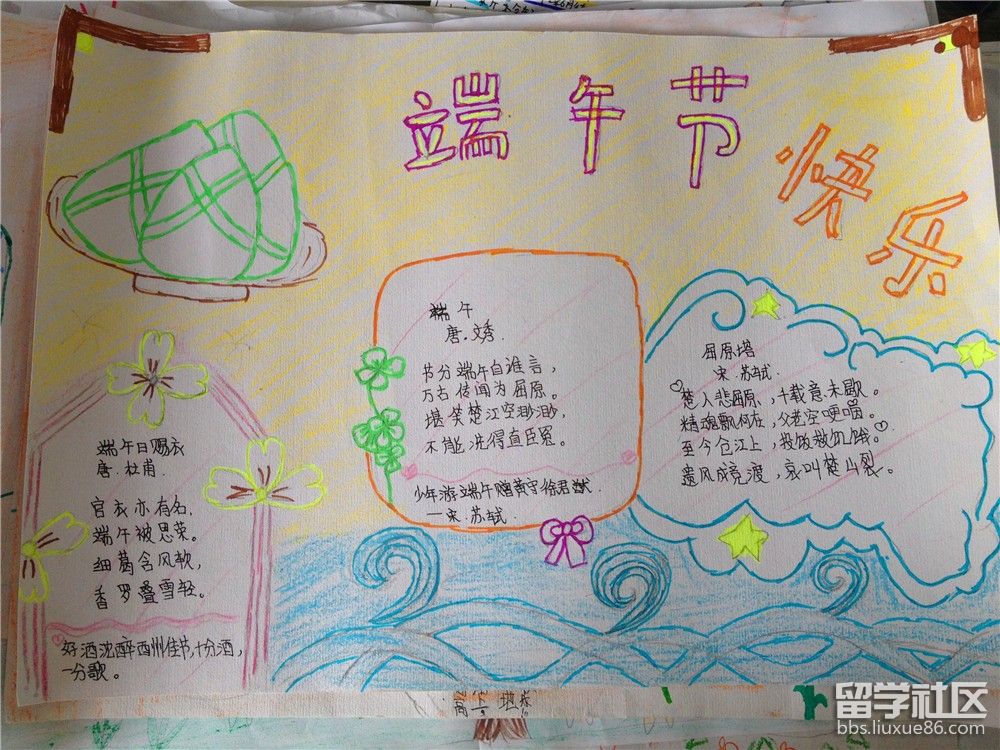 端午节
快乐
端午
唐.文秀.
节分端午自谁言，
万古传闻为屈原。
堪笑楚江空渺渺，
不能洗得直臣冤。
少年游端午赠黄守徐君猷.
—宋.苏轼.
屈原塔
宋.苏轼.
楚人悲屈原，千载意未歇。
精魂飘何在，父老空哽咽。
至今仓江上，投饭救饥饿。
遗风成竞渡，哀叫楚山裂。
端午日赐衣
唐.杜甫.
官衣亦有名，
端午被恩荣。
细葛含风软，
香罗叠雪轻。
好酒沈醉西州佳节，十分酒，
一分歌。
留学社区
bbs.liuxue86.com